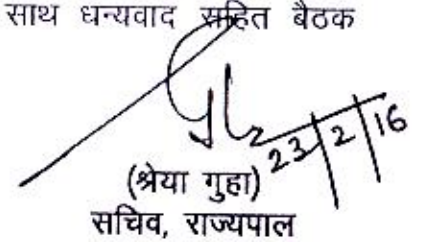 साथ धन्यवाद सहित बैठक
23/2/16
(श्रेया गुहा)
सचिव, राज्यपाल